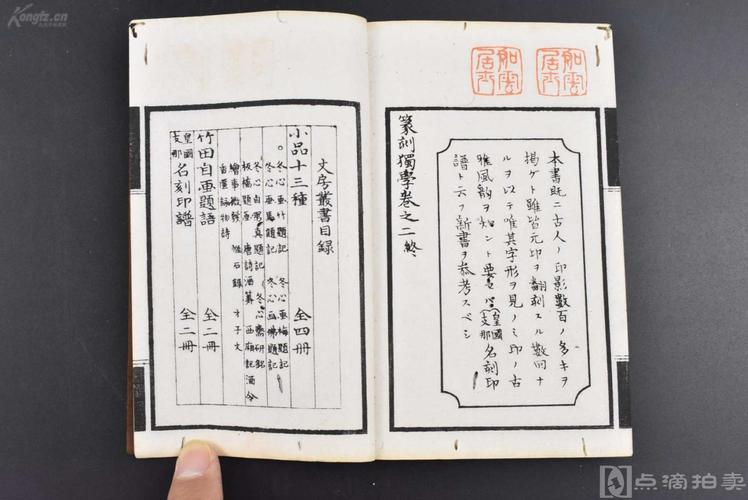 本書既ニ古人ノ印影数百ノ多キヲ
掲ゲト雖皆元印ヲ翻刻スル数回ナ
ルヲ以テ唯其字形ヲ見ノミ印ノ古
雅風韵ヲ知ント要セバ皇國支那名刻印
譜ト云フ新書ヲ参考スベシ
篆刻獨學卷之二終
文房叢書目録
小品十三種 全四册
冬心画竹題記 冬心画梅題記
冬心画馬題記 冬心画佛題記
冬心自寫真題記 冬心齋研銘
板橋題画 唐詩酒籌 西廂記酒令
才子文
香奩詠物詩
竹田自画題語 全二册
皇國支那名刻印譜 全二册
如雲居
如雲居
Kongfz.cn
点滴拍卖